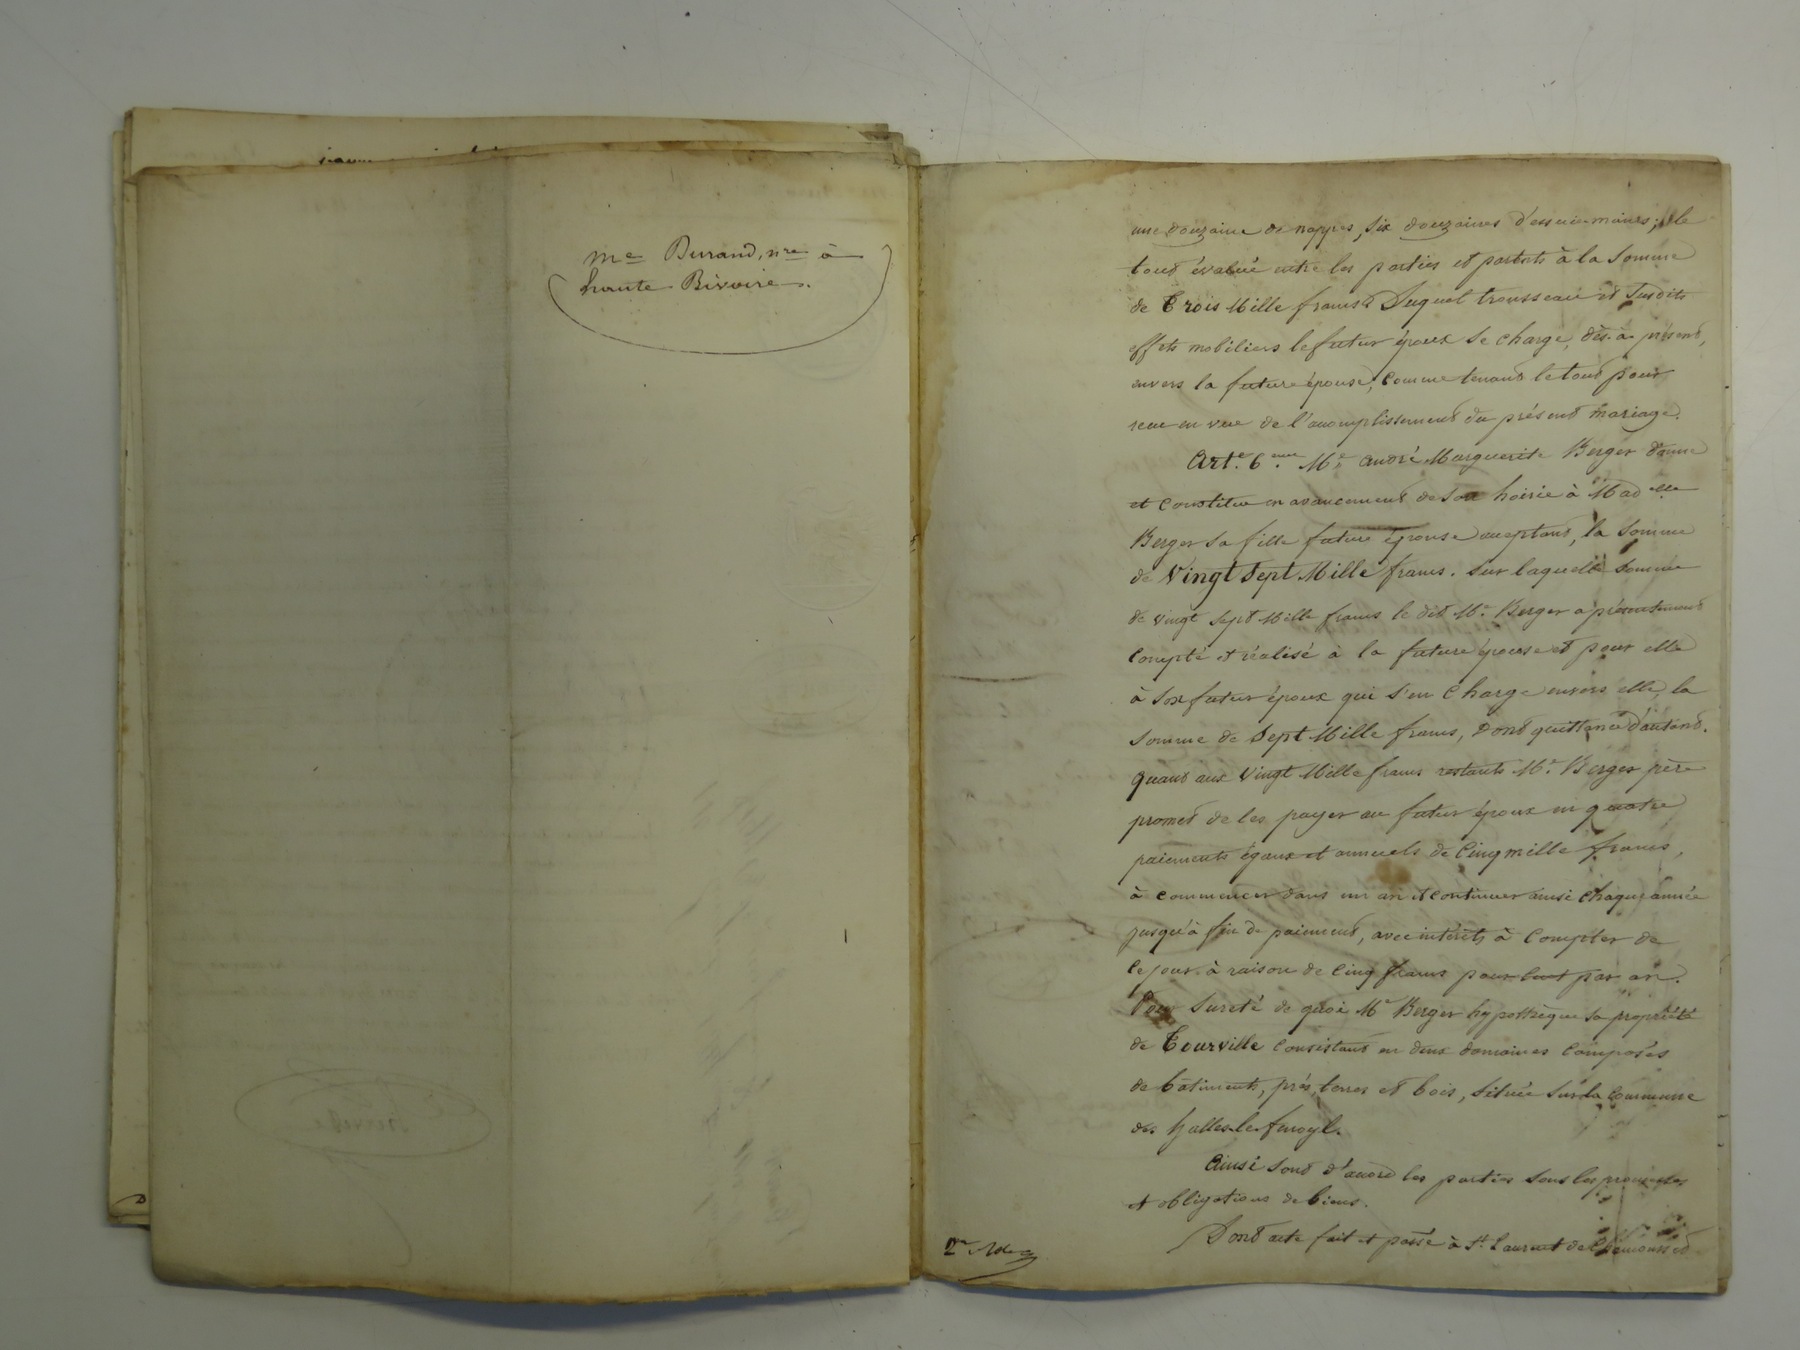 Me Durand, nre à
haute Rivoire.
une douzaine de nappes, six douzaines d'essuie-mains; le
tout évalué entre les parties et portant à la somme
de Trois Mille francs Duquel trousseau et susdits
effets mobiliers le futur époux se charge, dès-à-présent,
envers la future épouse, comme tenant le tout pour
recu en vue de l'acomplissement du présent mariage.
Arte. 6.eme Mr. André Marguerite Berger donne
et constitue en avancement de son hoirie à Madelle
Berger sa fille future épouse acceptant, la somme
de Vingt Sept Mille francs. Sur laquelle somme
de vingt sept Mille francs le dit Mr. Berger a présentement
compté et réalisé à la future épouse et pour elle
à son futur époux qui s'en charge envers elle, la
somme de Sept Mille francs, Dont quittance d'autant.
quant aux Vingt Mille francs restants Mr. Berger père
promet de les payer au futur époux en quatre
paiements égaux et annuels de Cinq mille francs,
à commencer dans un an et continuer ainsi chaque année
jusqu'à fin de paiement, avec intérêts à compter de
ce jour à raison de Cinq francs pour cent par an.
Pour sureté de quoi Mr Berger hypothèque sa propriété
de Tourville consistant en deux domaines composés
de bâtiments, prés, terres et bois, située sur la commune
des halles-le-fenoyl.
Ainsi sont d'acord les parties sous les promesses
et obligations de biens.
Dont acte fait et passé à St. Laurent de Chamousset
2e Role